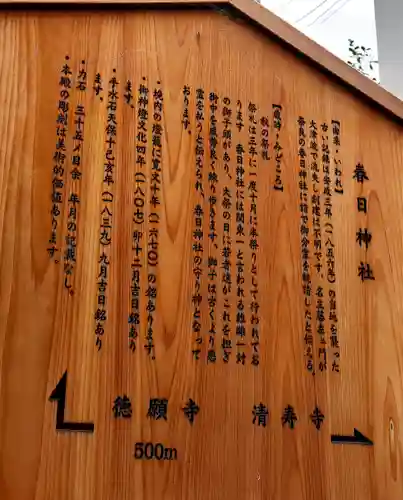 春日神社
【由来・いわれ】
古い記録は安政三年(一八五六年)の当地を襲った
大津波で流失し創建は不明です。名主藤左ヱ門が
奈良の春日神社に詣で御分霊を勧請したと伝える。
【歳時・みどころ】
秋の祭礼
祭礼は三年に一度十月に本祭りとして行われてお
ります 春日神社には関東一と言われる雌雄一対
の獅子頭があり、大祭の日に若者達がこれを担ぎ
御中を威勢良く練り歩きます。獅子は古くより悪
霊を払うと伝えられ、春日神社の守り神となって
おります。
・境内の燈籠に寛文十年(一六七〇)の銘あります。
・御神燈文化四年(一八〇七)卯十二月吉日銘あり
ます。
・手水石天保十己亥年(一八三九)九月吉日銘あり
ます。
・力石 三十五〆目余 年月の記載なし。
・本殿の彫刻は美術的価値あります。
徳願寺
500m
清寿寺